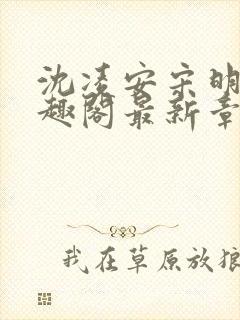 沈凌安宋明
趣阁最新章
我在草原放狼